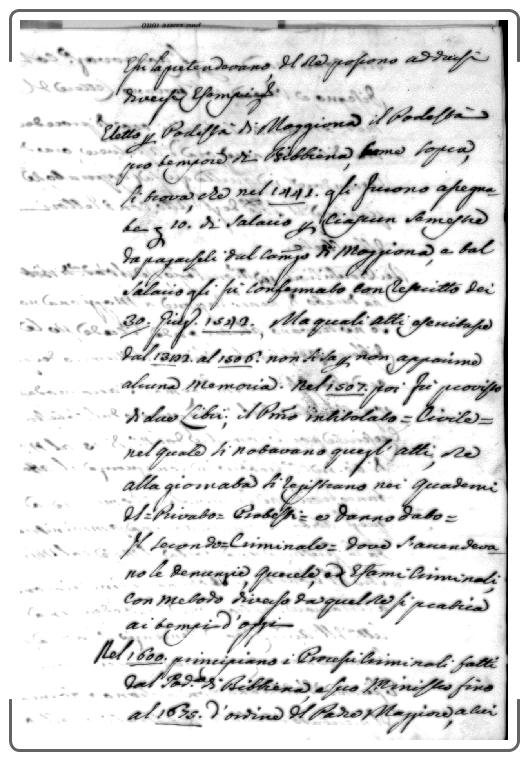 che la pretendevano, del Re posono addursi
diversi Esempi
Eletto p Podestà di Moggiona il Podestà
pro tempore di Bibbiena, come sopra,
si trova, che nel 1441. gli furono asegna-
te 10. di Salario p Ciascun Semestre
da pagarseli dal Comº di Moggiona, e tal
Salario gli fù confermato con rescritto dei
30. Giugº 1542. Ma quali atti esercitasse
dal al 1506. non si sà p non apparirne
alcuna memoria. Nel 1507. poi fù provisto
di due Libri, il Pmo intitolato = Civile =
nel quale si notavano quegl' atti, che
alla giornata si registrano nei quaderni
del = Privato = Protesti = e Danno dato =
Il secondo = Criminale = dove s'accendeva
no le denunzie, querele, ed Esami Criminali,
con metodo diverso da quel che si pratica
ai tempi d'oggi
Nel 1600. principiano i Procesi Criminali fatti
dal Podà di Bibbiena, e suo Ministro fino
al 1675. d'ordine del Padre Maggiore, a cui